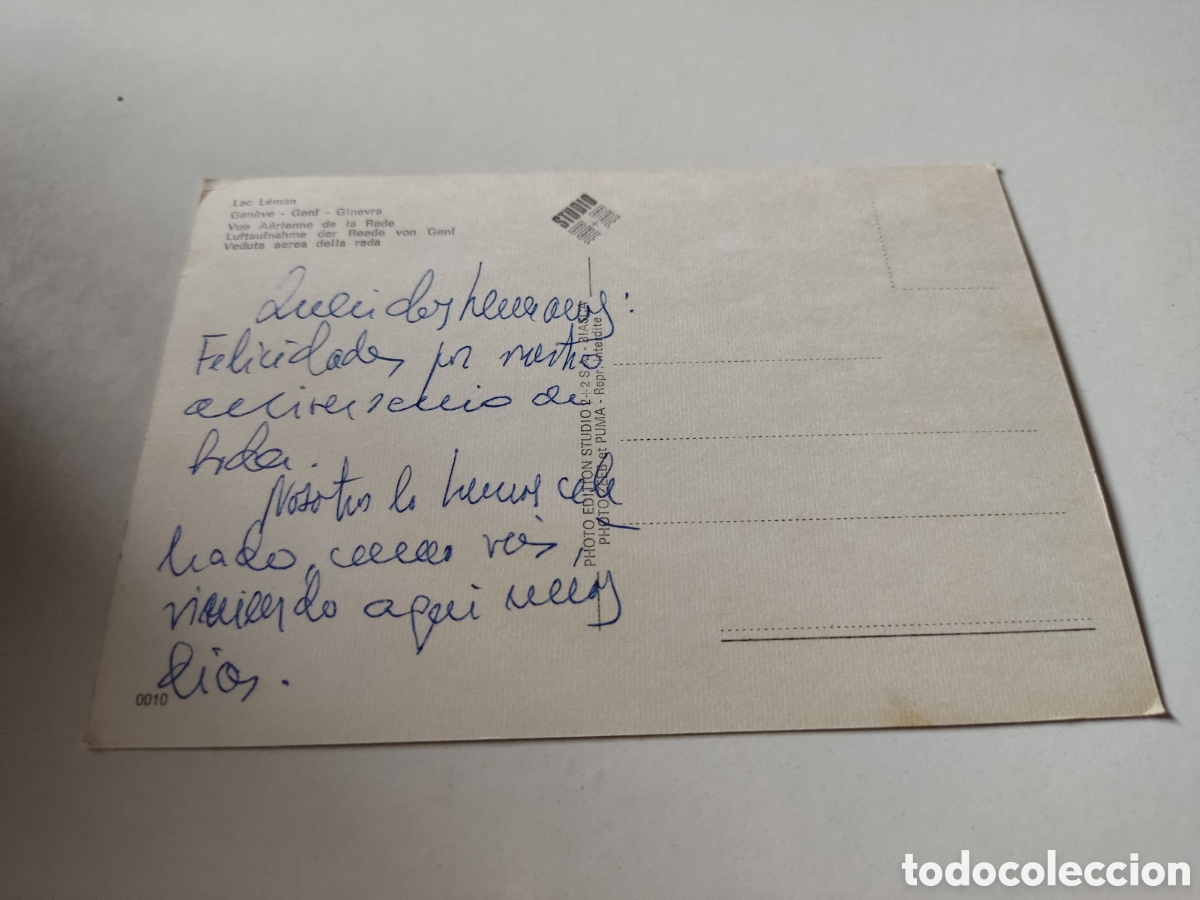 Lac Léman
Genève - Genf - Ginevra
Vue Aérienne de la Rade
Luftaufnahme der Reede von Genf
Veduta aerea della rada
STUDIO
DUE
+
DUE
Queridos hermanos:
Felicidades por
aniversario de
boda.
Nosotros lo hemos cele
brado, como veis,
viniendo aqui unos
dias.
0010
PHOTO EDITION STUDIO 2+2 S
PHOTO et PUMA - Repr. interdite
todocoleccion